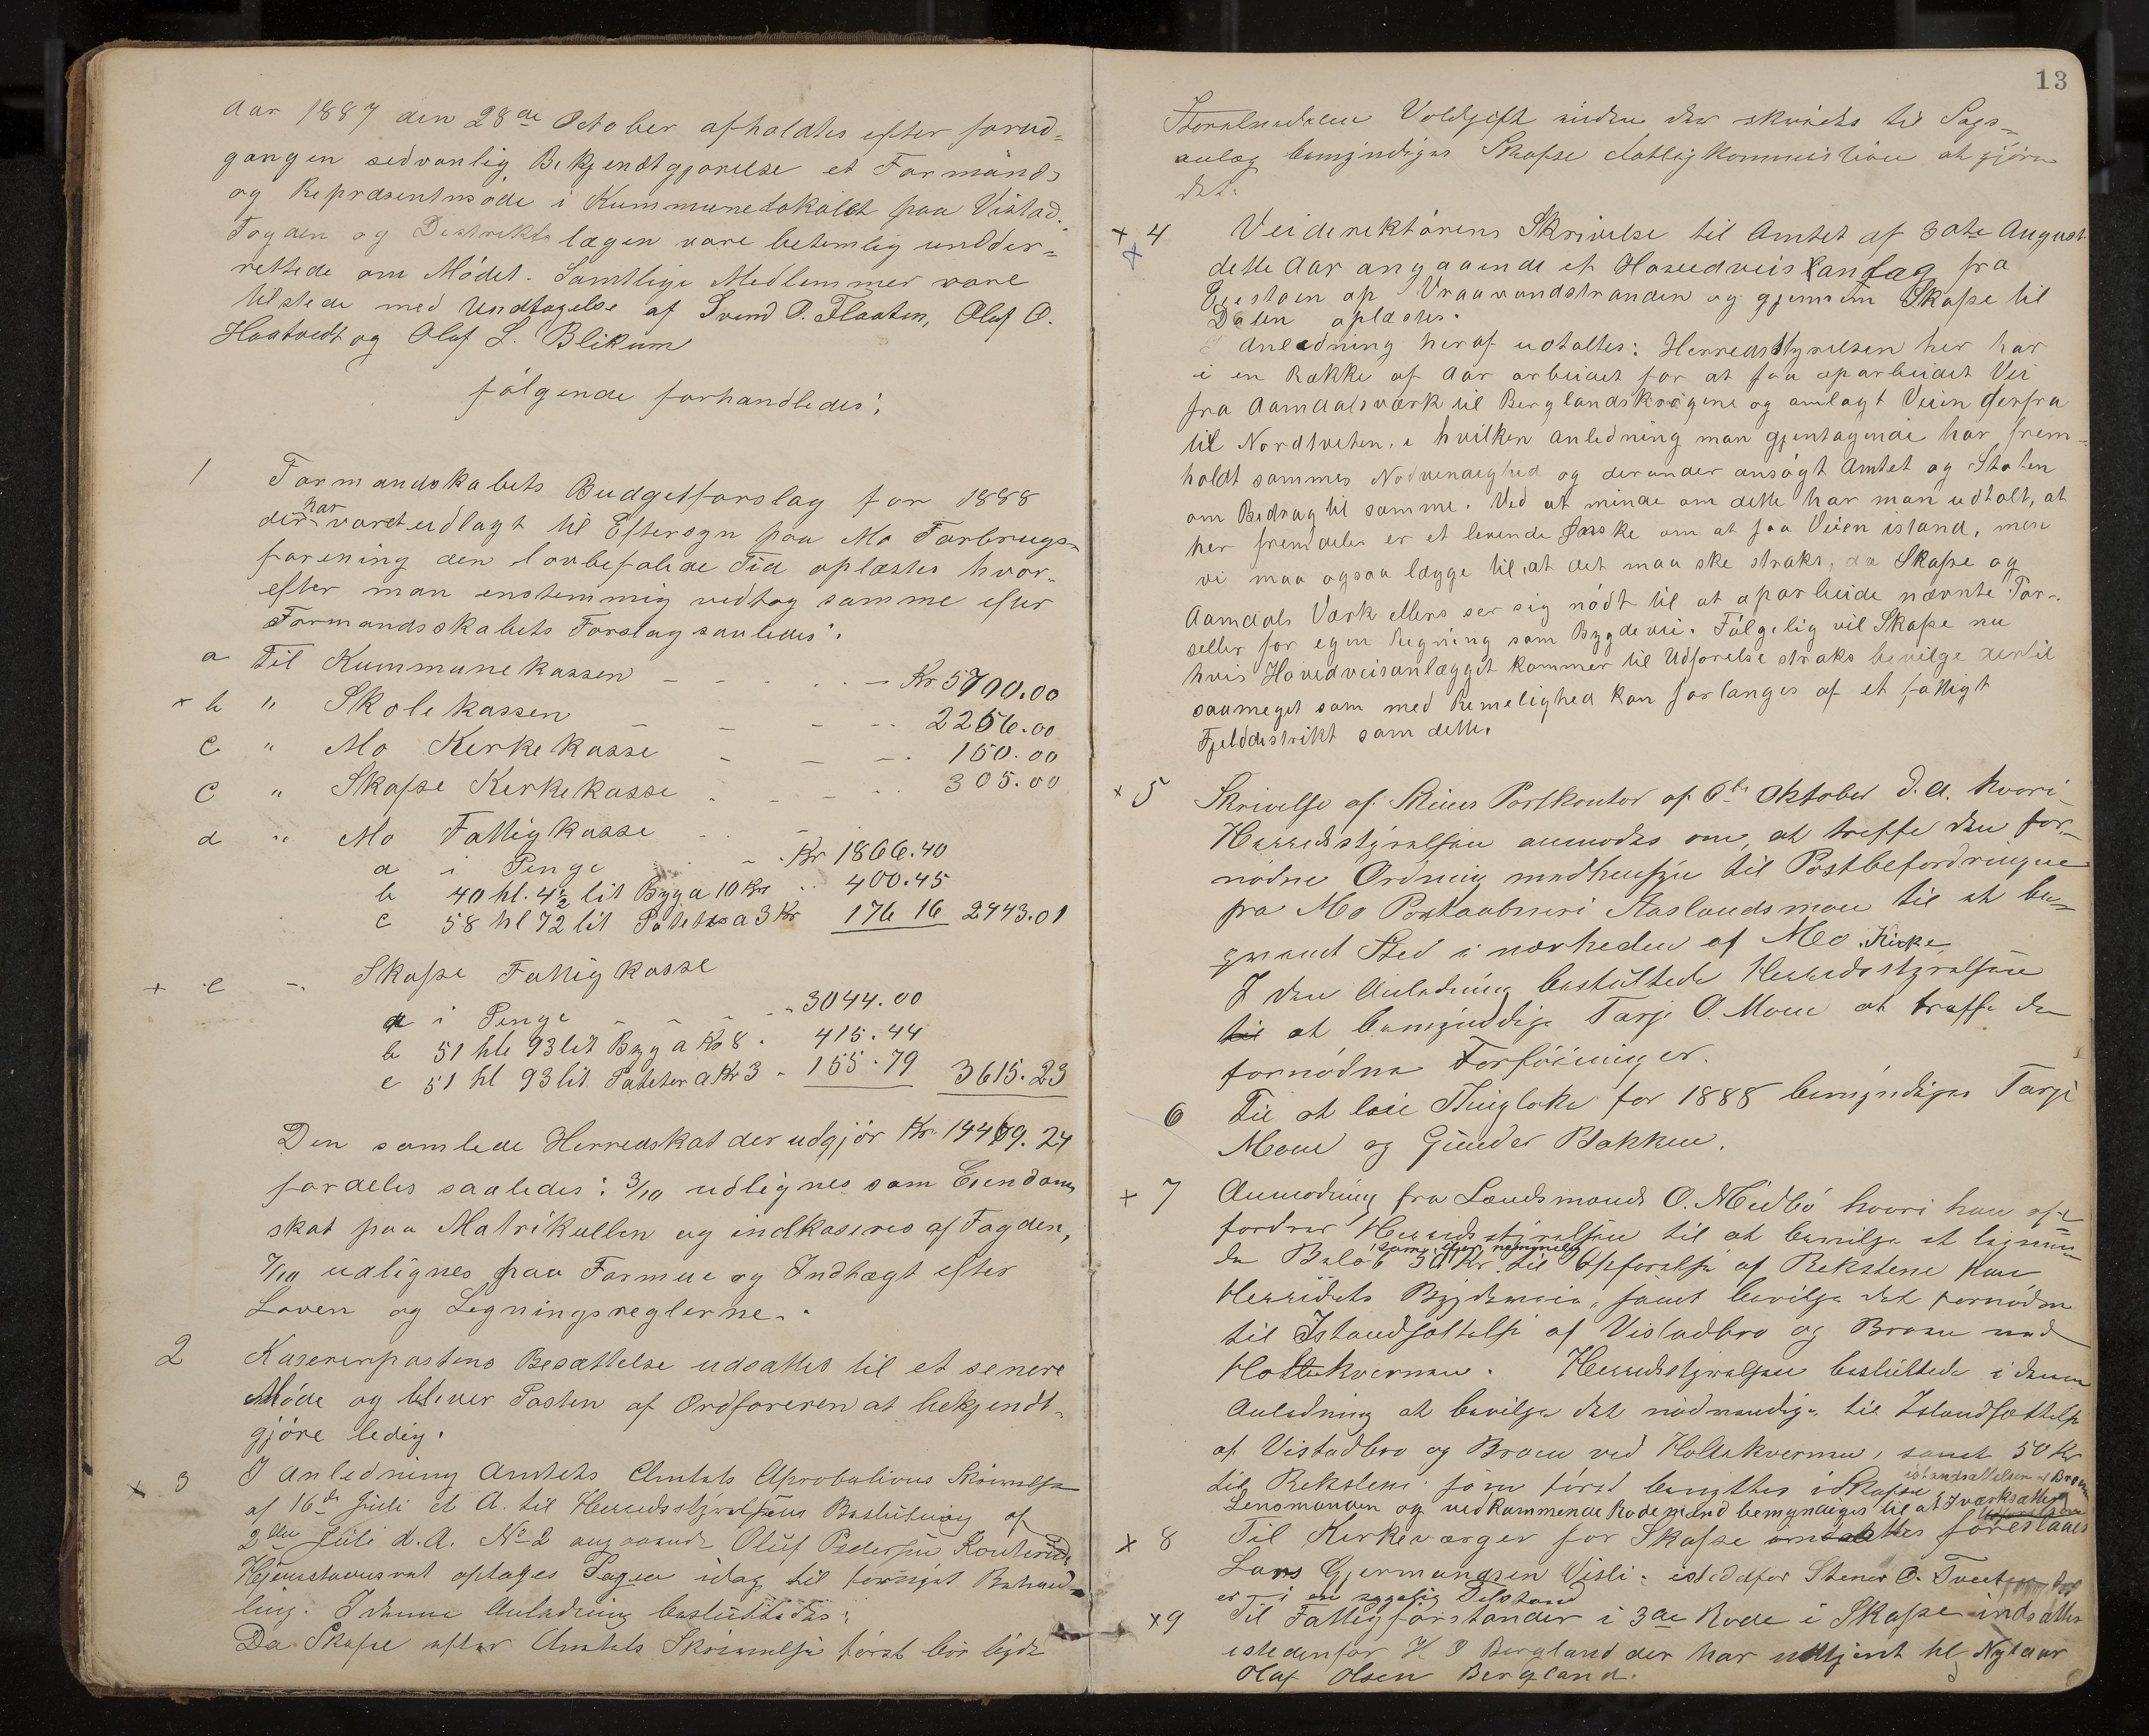 Aar 1887 den 28de October afholdtes efter forud-
gangen sedvanlig Bekjendtgjørelse et Formands
og Repræsentmøde i Kummunelokalet paa Vistad.
Fogden og Destrektslægen vare betimlig undder-
rettede om Mødet. Samtlige Medlemmer vare
tilstede med Undtagelse af Svend P. Flaaten, Oluf O.
Haatvedt og Olaf L. Blikum
følgende forhandledes:
1 Formandskabets Budgetforslag for 1888
der har været udlagt til Eftersyn paa Mo Forbrugs-
forening den lovbefalede Tid oplæstes hvor-
efter man enstemmig vedtog samme efter
Formandsskabets Forslag saaledes:
a Til Kummunekassen Kr 5700.00
x b " Skolekassen 2256.00
c " Mo Kerkekasse 150.00
c " Skafse Kerkekasse 305.00
d " Mo Fattigkasse
a i Penge Kr 1866.40
b 40 hl. 4½ lit Byg a 10 Kr 400.45
c 58 hl 72 lit Poteter a 3 Kr 176 16 2443.01
+ e Skafse Fattigkasse
a i Penge 3044.00
b 51 hl 93 lit Byg a Kr 8 415.44
c 51 hl 93 lit Poteter a Kr 3 155.79 3615.23
Den samlede Herredskat der udgjør Kr 14469.24
fordeles saaledes: 3/10 udlignes som Eiendoms
skat paa Matrikullen og indkaseres af Fogden,
7/10 udlignes paa Formue og Indtægt efter
Loven og Legningsreglerne.
2 Kasererpostens Besættelse udsattes til et senere
Møde og bliver Posten af Ordføreren at bekjendt-
gjøre ledig.
x 3 I Anledning Amtets Aprobations Skrivelse
af 16de Juli d. A. til Herredsstyrelsens Beslutning af
2den Juli d. A. No 2 angaaende Oluf Pedersen
Hjemstavnsret optages Sagen idag til fornyet Behand-
ling. I denne Anledning besluttedes:
Da Skafse efter Amtets Skrivelse først bør byde
13
Voldgift inden der skrides til Sags-
anlæg bemyndiges Skafse Fattigkommission at gjøre
det.
x 4 Veiderektørens Skrivelse til Amtet af 30te August
x
dette Aar angaaende et Hovedveisanlæg fra
op Vraavandstranden og gjennem Skafse til
Dalen oplæstes.
I Anledning heraf udtaltes: Herredsstyrelsen her har
i en Række af Aar arbeidet for at faa oparbeidet Vei
fra Aamdalsværk til Berglandskrogene og omlagt Veien derfra
til Nordtveten, i hvilken Anledning man gjentagende har frem-
holdt sammes Nødvendighed og derunder ansøgt Amtet og Staten
om Bedrag til samme. Ved at minde om dette har man udtalt, at
her fremdeles er et levende Ønske om at faa Veien istand, men
vi maa ogsaa lægge til, at det maa ske straks, da Skafse og
Aamdals Værk ellers ser sig nødt til at oparbeide nævnte Par-
seller for egen Regning som Bygdevei. Følgelig vil Skafse nu
hvis Hovedveisanlægget kommer til Udførelse straks bevilge dertil
saameget som med Remelighed kan forlanges af et fattigt
Fjelddistrikt som dette.
x 5 Skrivelse af Skiens Postkontor af 6te Oktober d. A. hvori
Herredsstyrelsen anmodes om, at treffe den for-
nødne Ordning medhensyn til Postbefordringen
fra Mo Postaabneri Aaslandsmoen til et be-
qvemt Sted i nærheden af Mo Kirke
I den Anledning besluttede Herredsstyrelsen
til at bemyndige Tarje O. Moen at treffe de
fornødne Forføininger.
6 Til at leie Thinglokale for 1888 bemyndiges Tarje
Moen og Gunder Bakken.
x 7 Anmodning fra Lensmand O. Midbø hvori han op-
fordrer Herredsstyrelsen til at bevilge et
de Beløb 50 Kr til Opførelse af Rekstene
Herredets Bygdeveie, samt bevilge det fornødne
til Istandsættelse af Vistadbro og Broen ved
Holtekvernen. Herredsstyrelsen besluttede i denne
Anledning at bevilge det nødvendige til Istandsættelse
af Vistadbro og Broen ved Holtekvernen, samt 50 Kr
til Rekstene som først benyttes i Skafse. istandsættelsen af Broen
Lensmanden og vedkommende Rodemænd bemyndiges til at Iværksætte
x 8 Til Kerkeværger for Skafse foreslaaes
Lars Gjermundsen Visli istedetfor Stener O. Tveten
er i en sygelig Tilstand
x 9 Til Fattigforstander i 3de Rode i Skafse indsattes
istedenfor H P Bergland der har udtjent til Nytaar
Olaf Olsen Bergland.